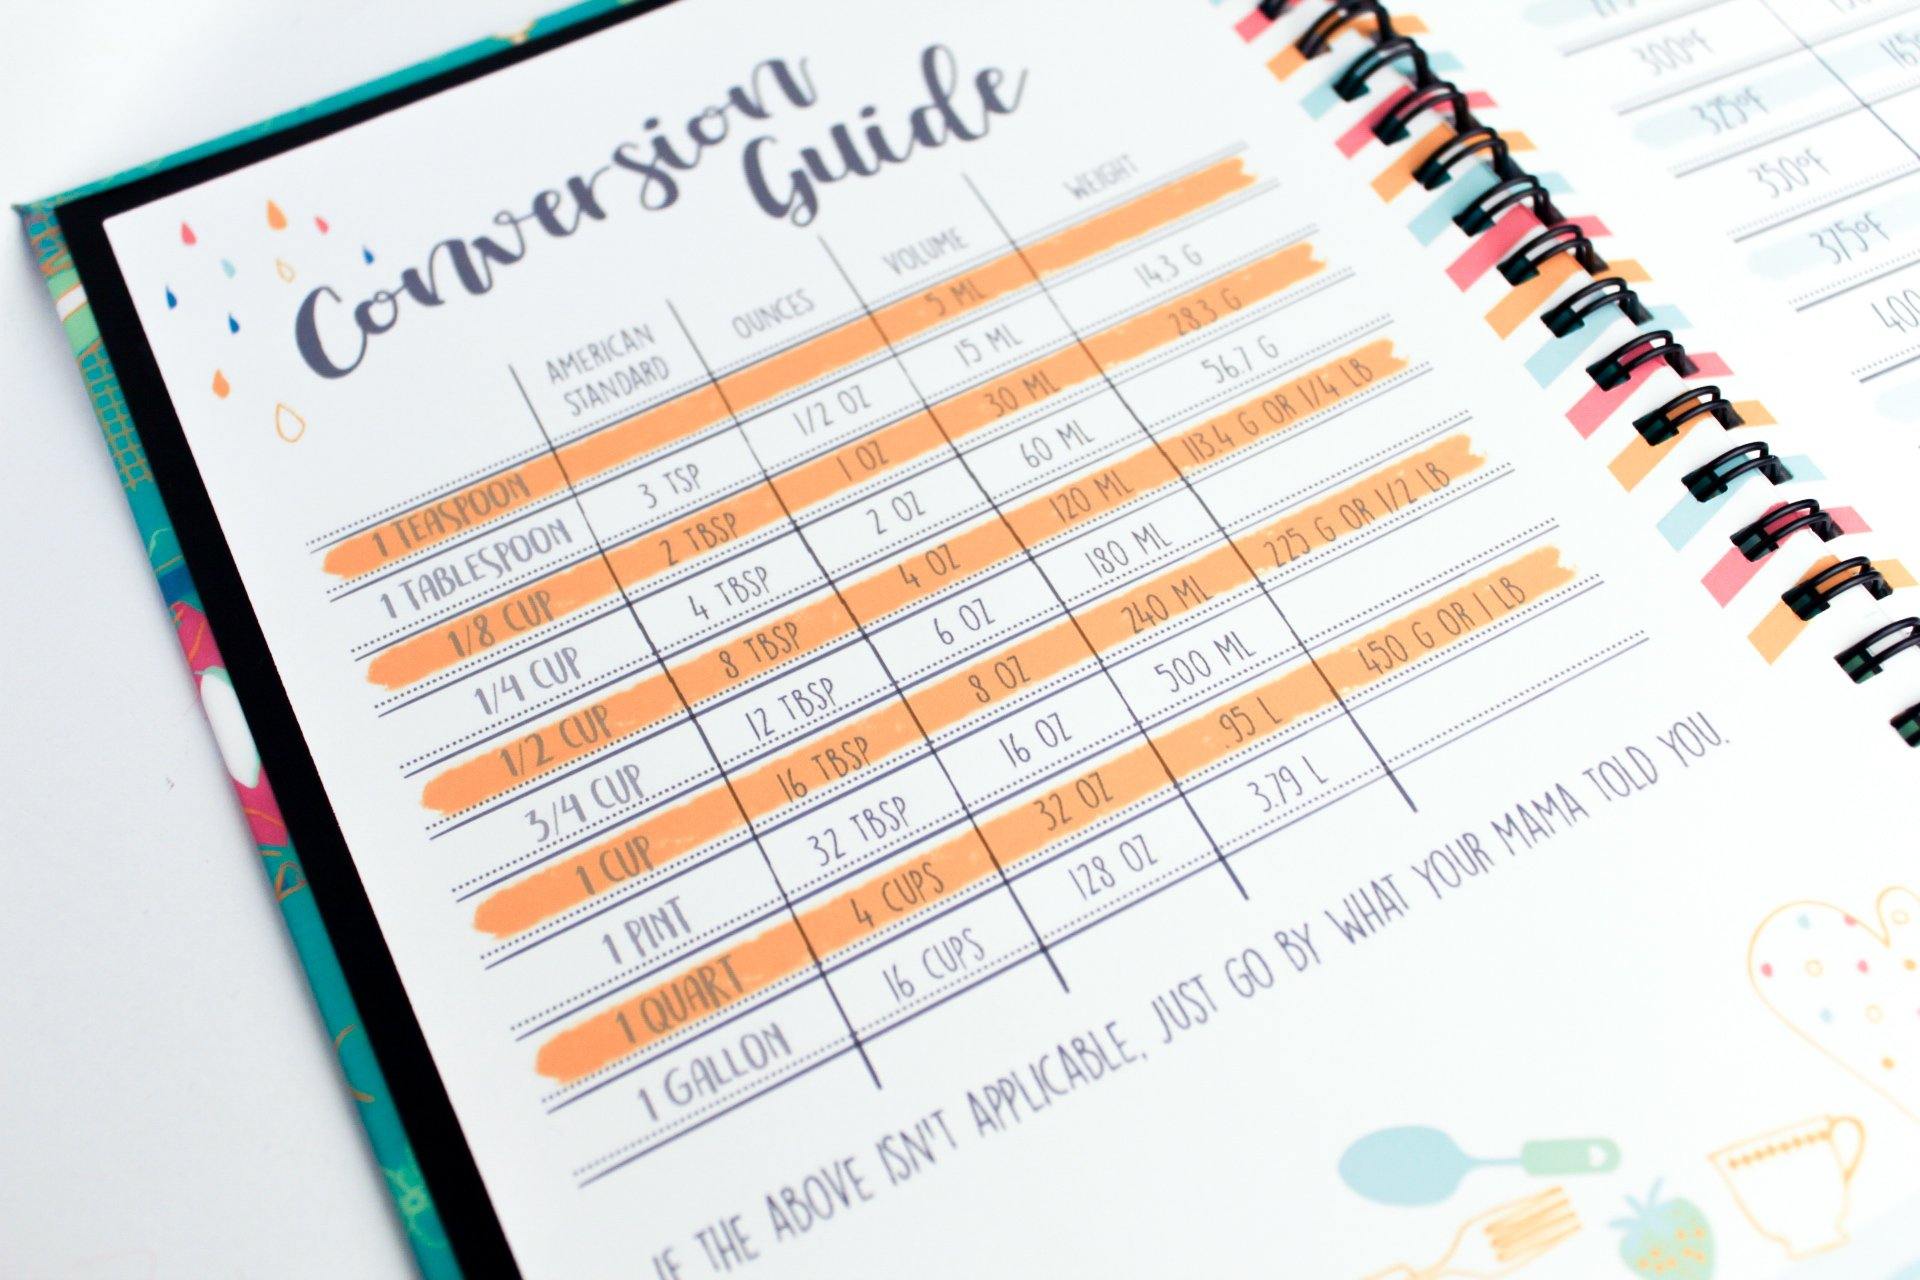 Conversion
Guide
AMERICAN STANDARD OUNCES VOLUME WEIGHT
1 TEASPOON 5 ML
1 TABLESPOON 3 TSP 1/2 OZ 15 ML 14.3 G
1/8 CUP 2 TBSP 1 OZ 30 ML 28.3 G
1/4 CUP 4 TBSP 2 OZ 60 ML 56.7 G
1/2 CUP 8 TBSP 4 OZ 120 ML 113.4 G OR 1/4 LB
3/4 CUP 12 TBSP 6 OZ 180 ML
1 CUP 16 TBSP 8 OZ 240 ML 225 G OR 1/2 LB
1 PINT 32 TBSP 16 OZ 500 ML
1 QUART 4 CUPS 32 OZ .95 L 450 G OR 1 LB
1 GALLON 16 CUPS 128 OZ 3.79 L
IF THE ABOVE ISN'T APPLICABLE, JUST GO BY WHAT YOUR MAMA TOLD YOU.
300°F
325°F
350°F
375°F